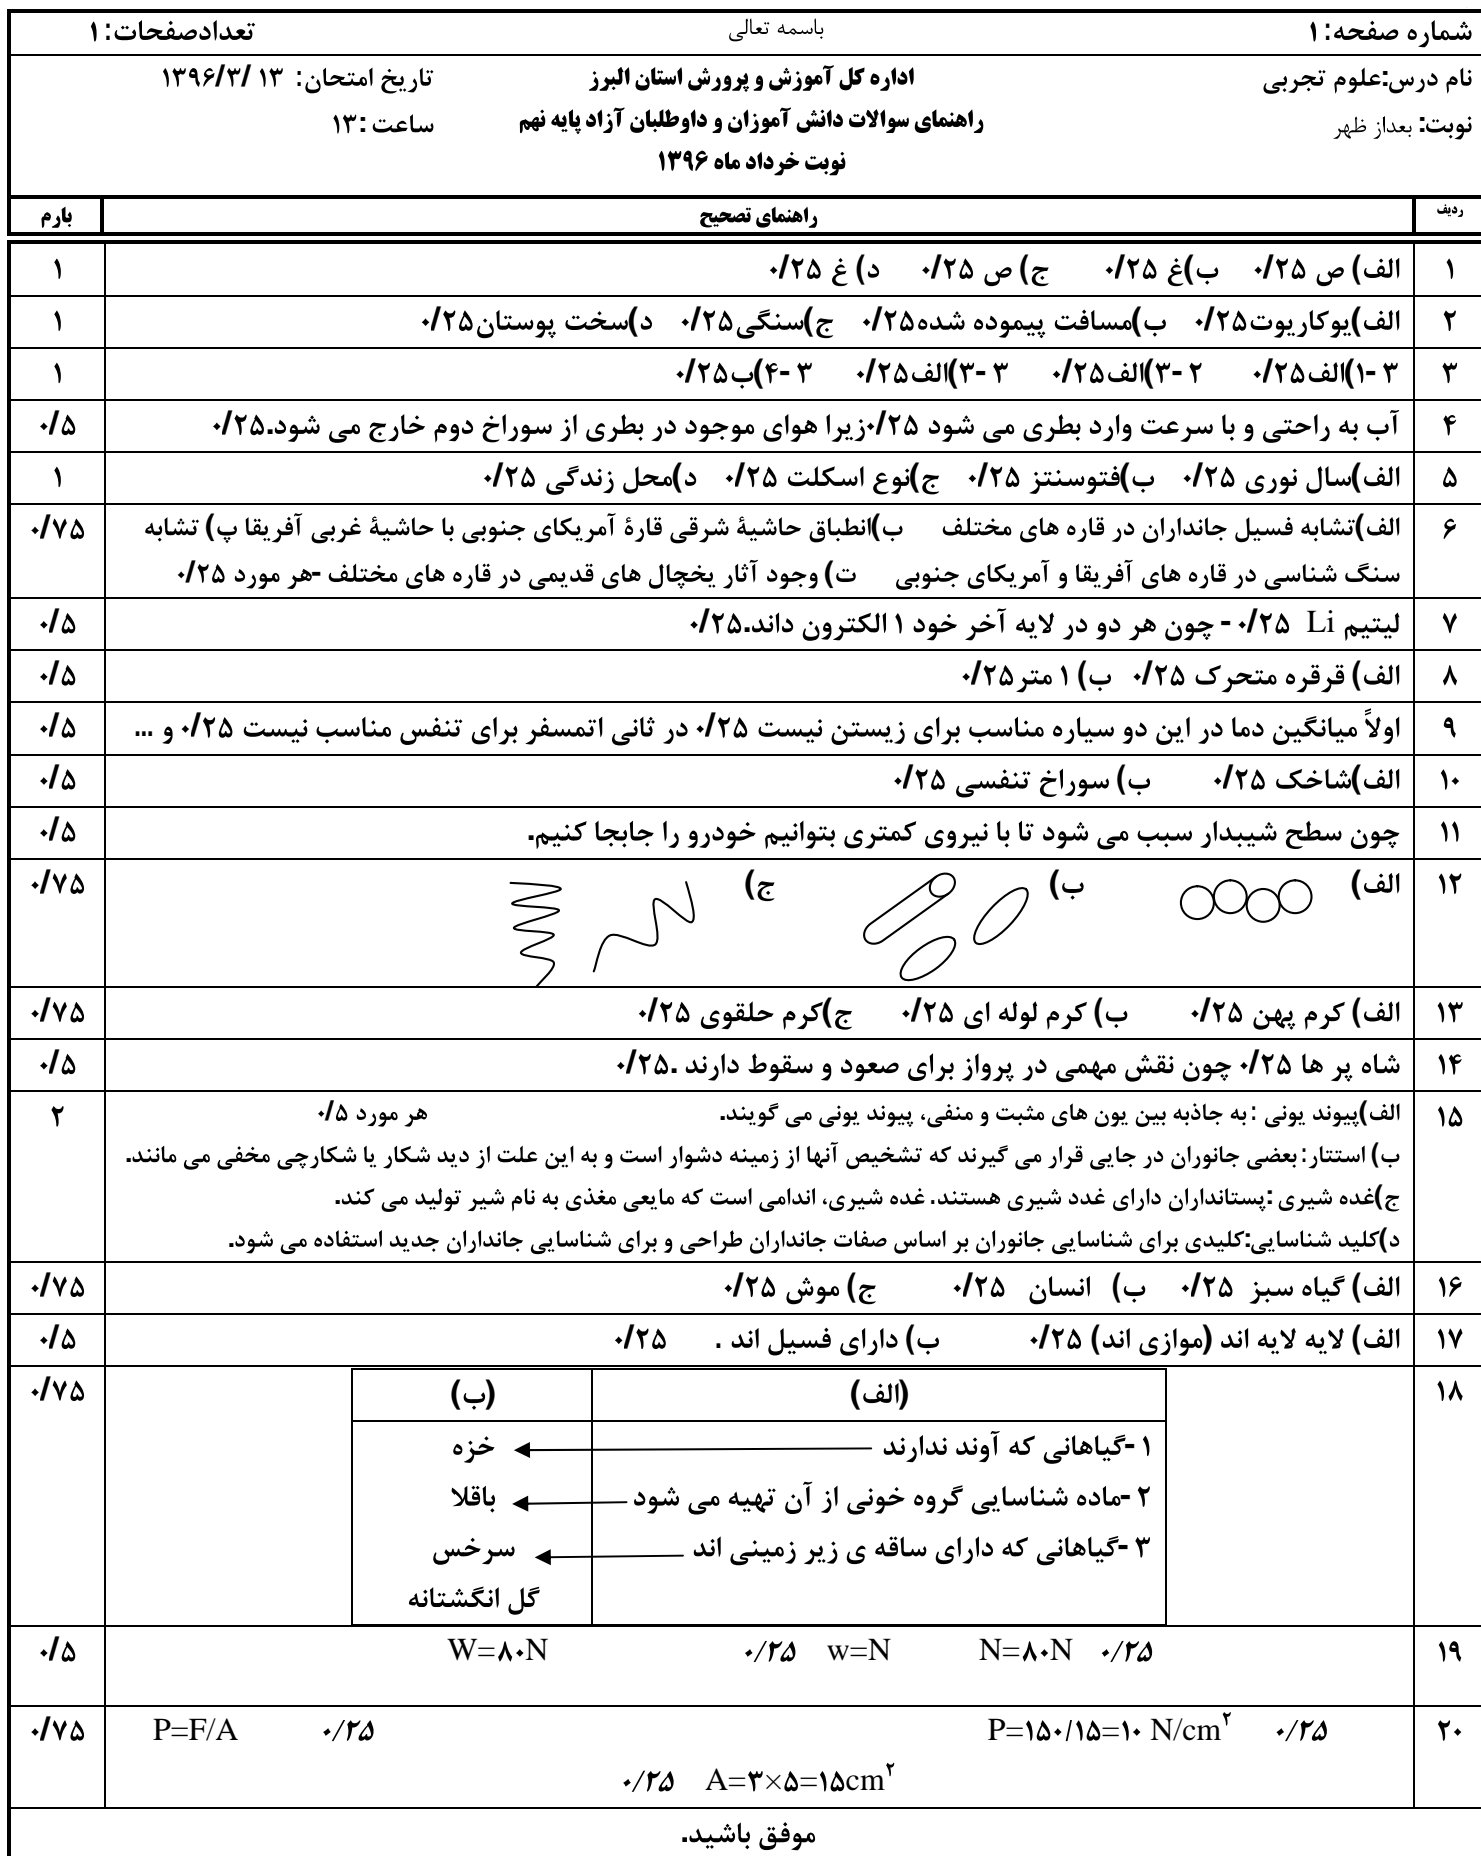 شماره صفحه: ۱ باسمه تعالی تعدادصفحات: ۱
نام درس:علوم تجربی اداره کل آموزش و پرورش استان البرز تاریخ امتحان: ۱۳ /۱۳۹۶/۳
نوبت: بعداز ظهر راهنمای سوالات دانش آموزان و داوطلبان آزاد پایه نهم ساعت :۱۳
نوبت خرداد ماه ۱۳۹۶
ردیف راهنمای تصحیح بارم
۱ الف) ص ۰/۲۵ ب)غ ۰/۲۵ ج) ص ۰/۲۵ د) غ ۰/۲۵ ۱
۲ الف)یوکاریوت۰/۲۵ ب)مسافت پیموده شده۰/۲۵ ج)سنگی۰/۲۵ د)سخت پوستان۰/۲۵ ۱
۳ ۳ -۱)الف۰/۲۵ ۲ -۳)الف۰/۲۵ ۳ -۳)الف۰/۲۵ ۳ -۴)ب۰/۲۵ ۱
۴ آب به راحتی و با سرعت وارد بطری می شود ۰/۲۵زیرا هوای موجود در بطری از سوراخ دوم خارج می شود.۰/۲۵ ۰/۵
۵ الف)سال نوری ۰/۲۵ ب)فتوسنتز ۰/۲۵ ج)نوع اسکلت ۰/۲۵ د)محل زندگی ۰/۲۵ ۱
۶ الف)تشابه فسیل جانداران در قاره های مختلف ب)انطباق حاشیهٔ شرقی قارهٔ آمریکای جنوبی با حاشیهٔ غربی آفریقا پ) تشابه ۰/۷۵
سنگ شناسی در قاره های آفریقا و آمریکای جنوبی ت) وجود آثار یخچال های قدیمی در قاره های مختلف -هر مورد ۰/۲۵
۷ لیتیم Li ۰/۲۵ - چون هر دو در لایه آخر خود ۱ الکترون داند.۰/۲۵ ۰/۵
۸ الف) قرقره متحرک ۰/۲۵ ب) ۱ متر۰/۲۵ ۰/۵
۹ اولاً میانگین دما در این دو سیاره مناسب برای زیستن نیست ۰/۲۵ در ثانی اتمسفر برای تنفس مناسب نیست ۰/۲۵ و ... ۰/۵
۱۰ الف)شاخک ۰/۲۵ ب) سوراخ تنفسی ۰/۲۵ ۰/۵
۱۱ چون سطح شیبدار سبب می شود تا با نیروی کمتری بتوانیم خودرو را جابجا کنیم. ۰/۵
۱۲ الف) ب) ج) ۰/۷۵
۱۳ الف) کرم پهن ۰/۲۵ ب) کرم لوله ای ۰/۲۵ ج)کرم حلقوی ۰/۲۵ ۰/۷۵
۱۴ شاه پر ها ۰/۲۵ چون نقش مهمی در پرواز برای صعود و سقوط دارند .۰/۲۵ ۰/۵
۱۵ الف)پیوند یونی : به جاذبه بین یون های مثبت و منفی، پیوند یونی می گویند. هر مورد ۰/۵ ۲
ب) استتار: بعضی جانوران در جایی قرار می گیرند که تشخیص آنها از زمینه دشوار است و به این علت از دید شکار یا شکارچی مخفی می مانند.
ج)غده شیری :پستانداران دارای غدد شیری هستند. غده شیری، اندامی است که مایعی مغذی به نام شیر تولید می کند.
د)کلید شناسایی:کلیدی برای شناسایی جانوران بر اساس صفات جانداران طراحی و برای شناسایی جانداران جدید استفاده می شود.
۱۶ الف) گیاه سبز ۰/۲۵ ب) انسان ۰/۲۵ ج) موش ۰/۲۵ ۰/۷۵
۱۷ الف) لایه لایه اند (موازی اند) ۰/۲۵ ب) دارای فسیل اند . ۰/۲۵ ۰/۵
۱۸ (الف) (ب) ۰/۷۵
۱ -گیاهانی که آوند ندارند خزه
۲ -ماده شناسایی گروه خونی از آن تهیه می شود باقلا
۳ -گیاهانی که دارای ساقه ی زیر زمینی اند سرخس
گل انگشتانه
۱۹ W=۸۰N ۰/۲۵ w=N N=۸۰N ۰/۲۵ ۰/۵
۲۰ P=F/A ۰/۲۵ P=۱۵۰/۱۵=۱۰ N/cm۲ ۰/۲۵ ۰/۷۵
۰/۲۵ A=۳×۵=۱۵cm۲
موفق باشید.